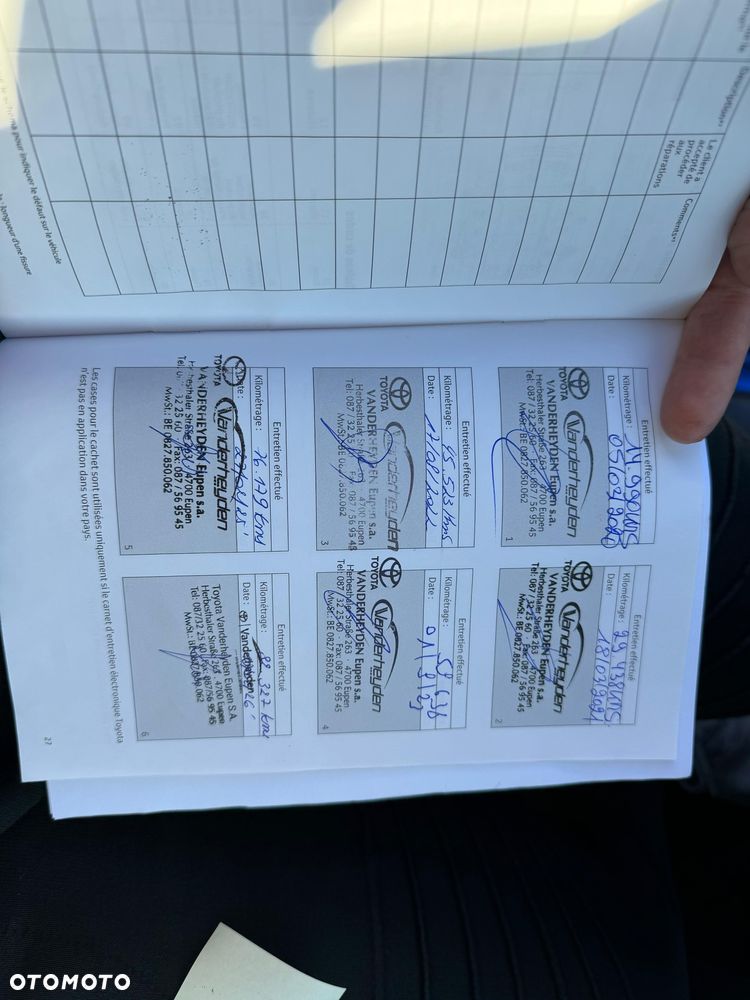 Description
Le client a
accepté de
procéder
aux
réparations
Comments
pour indiquer le défaut sur le véhicule
longueur d'une fissure
Entretien effectué
Kilométrage : 11.990
Date : 05/03/2020
TOYOTA
Vanderheyden
VANDERHEYDEN Eupen s.a.
Herbesthaler Straße 263 4700 Eupen
Tel: 087 / 32 25 60
MwSt.: BE 0827.850.062
1
Entretien effectué
Kilométrage : 29 438
Date : 18/03/2021
TOYOTA
Vanderheyden
VANDERHEYDEN Eupen s.a.
Herbesthaler Straße 263 4700 Eupen
Tel: 087 / 32 25 60 - Fax: 087 / 56 95 45
MwSt.: BE 0827.850.062
2
Entretien effectué
Kilométrage : 45.523 kms
Date :
TOYOTA
Vanderheyden
VANDERHEYDEN Eupen s.a.
Herbesthaler 4700 Eupen
Tel: 087 / 32 25 Fax: 087 / 56 95 45
MwSt.: BE 850.062
3
Entretien effectué
Kilométrage :
Date :
TOYOTA
Vanderheyden
VANDERHEYDEN Eupen s.a.
Herbesthaler Straße 263 4700 Eupen
Tel: 087 / 32 25 60 - Fax: 087 / 56 95 45
MwSt.: BE 0827.850.062
4
Entretien effectué
Kilométrage : 76.179 kms
Date :
TOYOTA
Vanderheyden
VANDERHEYDEN Eupen s.a.
Straße 4700 Eupen
Tel. 32 25 60 Fax: 087 / 56 95 45
MwSt.: BE 0827.850.062
5
Entretien effectué
Kilométrage : 327 kms
Date :
Vanderheyden
Toyota Vanderheyden Eupen S.A.
Herbesthaler Straße 4700 Eupen
Tel: 087/32 25 60 Fax 087/56 95 45
MwSt.: 850.062
6
Les cases pour le cachet sont utilisées uniquement si le carnet d'entretien électronique Toyota
n'est pas en application dans votre pays.
27
OTOMOTO